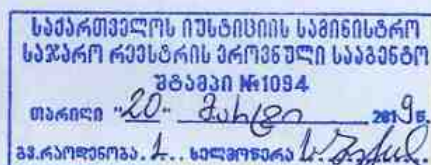 საქართველოს იუსტიციის სამინისტრო
საჯარო რეესტრის ეროვნული სააგენტო
შტამპი №1094
თარიღი "20" მარტი 2019 წ.
გვ.რაოდენობა. 1.. ხელმოწერა